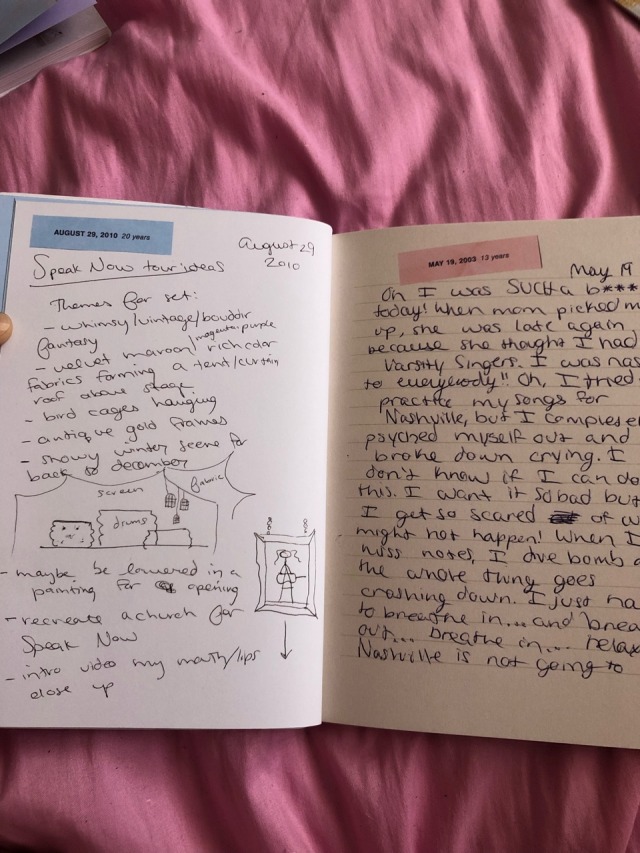 AUGUST 29, 2010 20 years
August 29
2010
Speak Now tour ideas
Themes for set:
- whimsy/vintage/bouddir
fantasy
- velvet maroon/magenta/purple rich color
fabrics forming a tent/curtain
roof above stage
- bird cages hanging
- antique gold frames
- snowy winter scene for
back to december
screen
fabric
drums
- maybe be lowered in a
painting for opening
- recreate a church for
Speak Now
- intro video my mouth/lips
close up
MAY 19, 2003 13 years
May 19
Oh I was SUCH a b***
today! When mom picked m
up, she was late again
because she thought I had
Varsity Singers. I was nas
to everybody!! Oh, I tried
practice my songs for
Nashville, but I completel
psyched myself out and
broke down crying. I
don't know if I can do
this. I want it so bad but
I get so scared of w
might not happen! When I
miss notes, I dive bomb a
the whole thing goes
crashing down. I just ha
to breathe in... and brea
out... breathe in... relax
Nashville is not going to